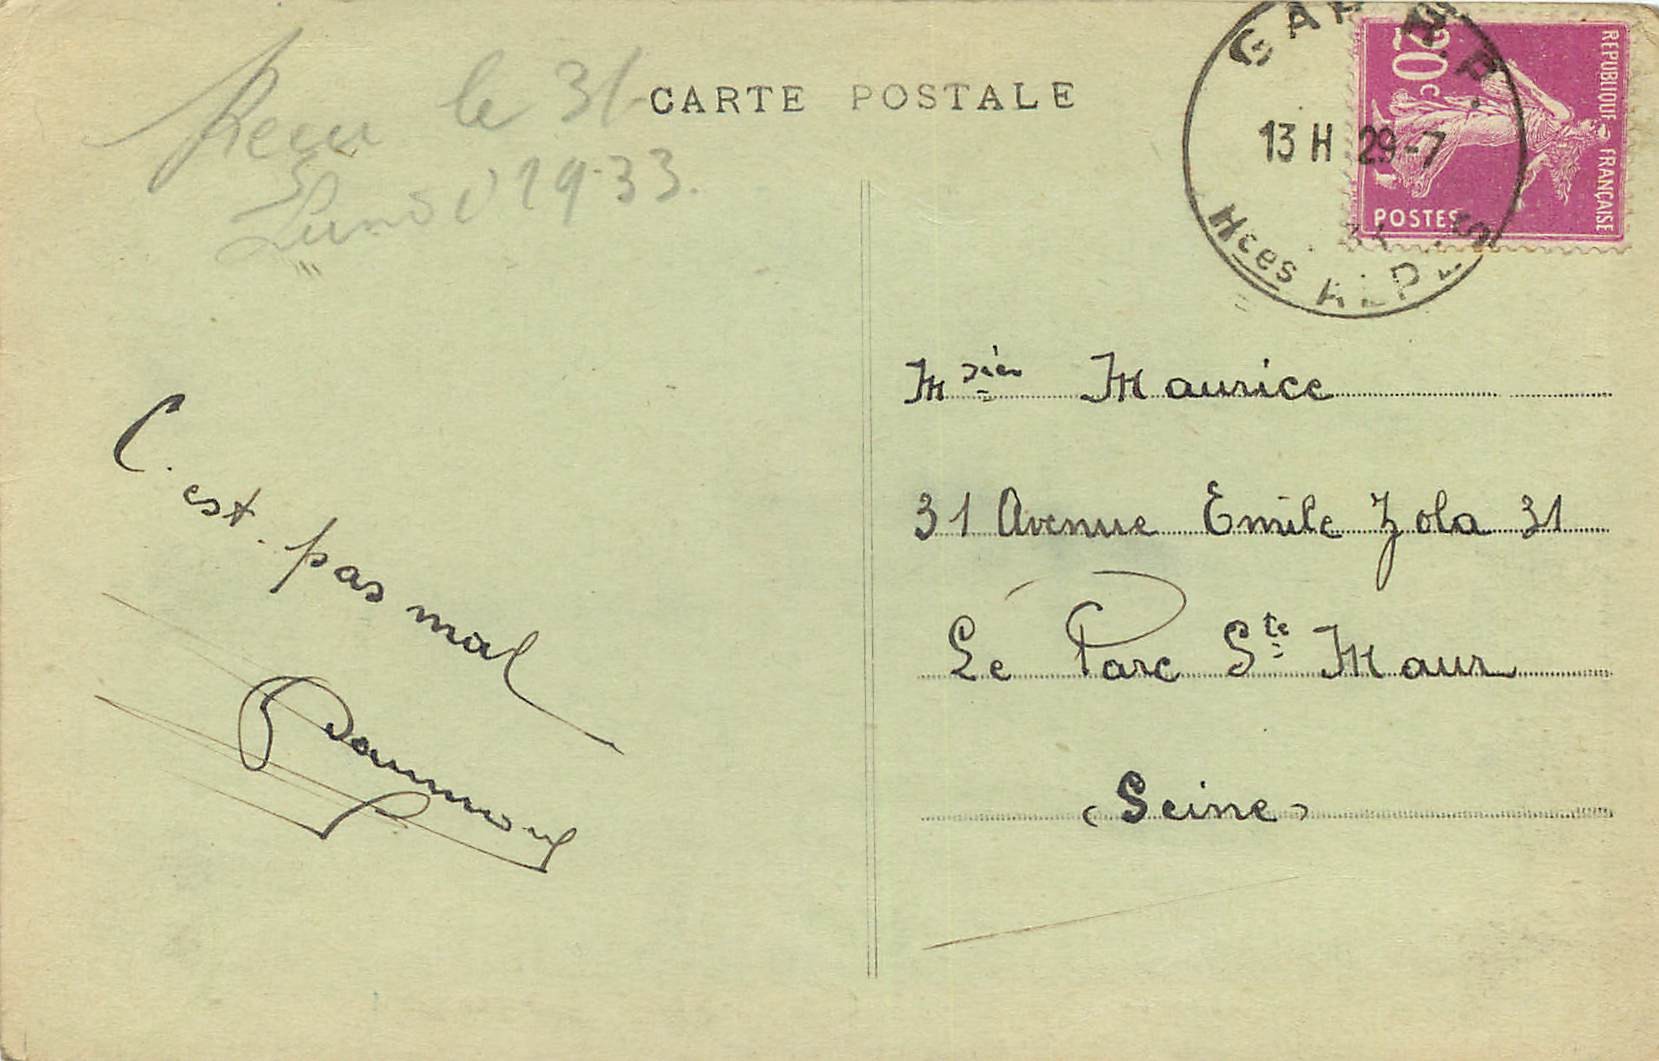 Recu le 31
Lundi 1933.
CARTE POSTALE
GAP R.P.
13 H 29-7
Htes ALPES
20c
REPUBLIQUE FRANÇAISE
POSTES
Msier Maurice
31 Avenue Emile Zola 31
Le Parc Ste Maur
(Seine)
C'est pas mal